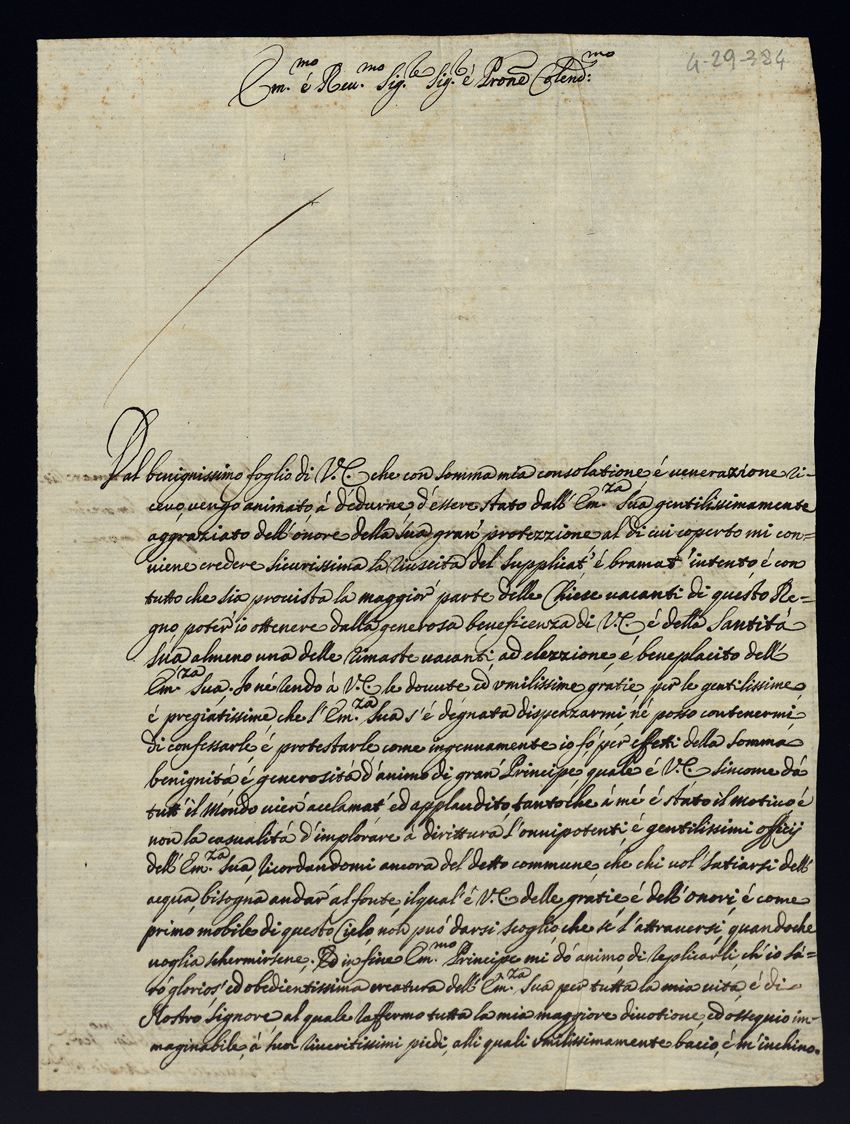 4-29-324
Em.mo é Reu.mo Sig.r Sig.r é Prone Colend:mo
Dal benignissimo foglio di V.E. che con somma mia consolatione é veneratione ri-
ceuo vengo animato á dedurne d'essere stato dall'Em.za Súa gentilissimamente
aggratiato dell'onore della súa gran' protezzione al di cui coperto mi con=
viene credere sicurissima la riuscita del supplicat' é bramat' intento é con
tutto che sia prouista la maggior' parte delle Chiese vacanti di questo Re=
gno poter'io ottenere dalla generosa beneficenza di V.E. é della Santitá
Súa almeno una delle rimaste vacanti ad elezzione é beneplacito dell'
Em.za Sua. Io né rendo á V.E. le douute ed vmilissime gratie per le gentilissime
é pregiatissime che l'Em.za Sua s'é degnata dispenzarmi né posso contenermi
di confessarle é protestarle come ingenuamente io fó per effetti della somma
benignitá é generositá d'animo di gran' Principe quale é V.E. sincome dá
tutt'il Mondo vien' acclamat' ed applaudito tantoche á mé é stato il motiuo é
non la casualitá d'implorare á dirittura l'onnipotenti é gentilissimi officij
dell'Em.za Sua, ricordandomi ancora del detto commune, che chi vol' satiarsi dell'
acqua, bisogna andar' al fonte il qual'é V.E. delle gratie é dell'onori é come
primo mobile di questo Cielo nón puó darsi scoglio che sé l'attraversi, quandoche
voglia schermirsene. Ed in fine Em.mo Principe mi dó animo di replicarli ch'io sa=
ró glorios' ed obedientissima creatura dell'Em.za Sua per tutta la mia vita, é di
Nostro Signore al quale raffermo tutta la mia maggiore diuotione, ed ossequio im-
maginabile, á suoi riueritissimi piedi, alli quali vmilissimamente bacio, é m'inchino.